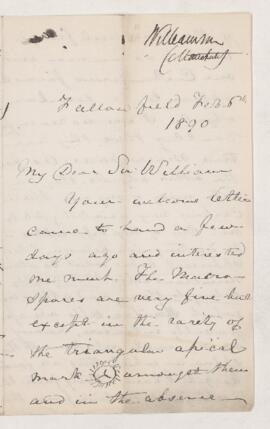 Williamson
Fallowfield Feb 6th
1890
My Dear Sir William
Your welcome letter
came to hand a few
days ago and interested
me much. The Macro-
spores are very fine but
except in the rarity of
the triangular apical
mark amongst them
and in the absence